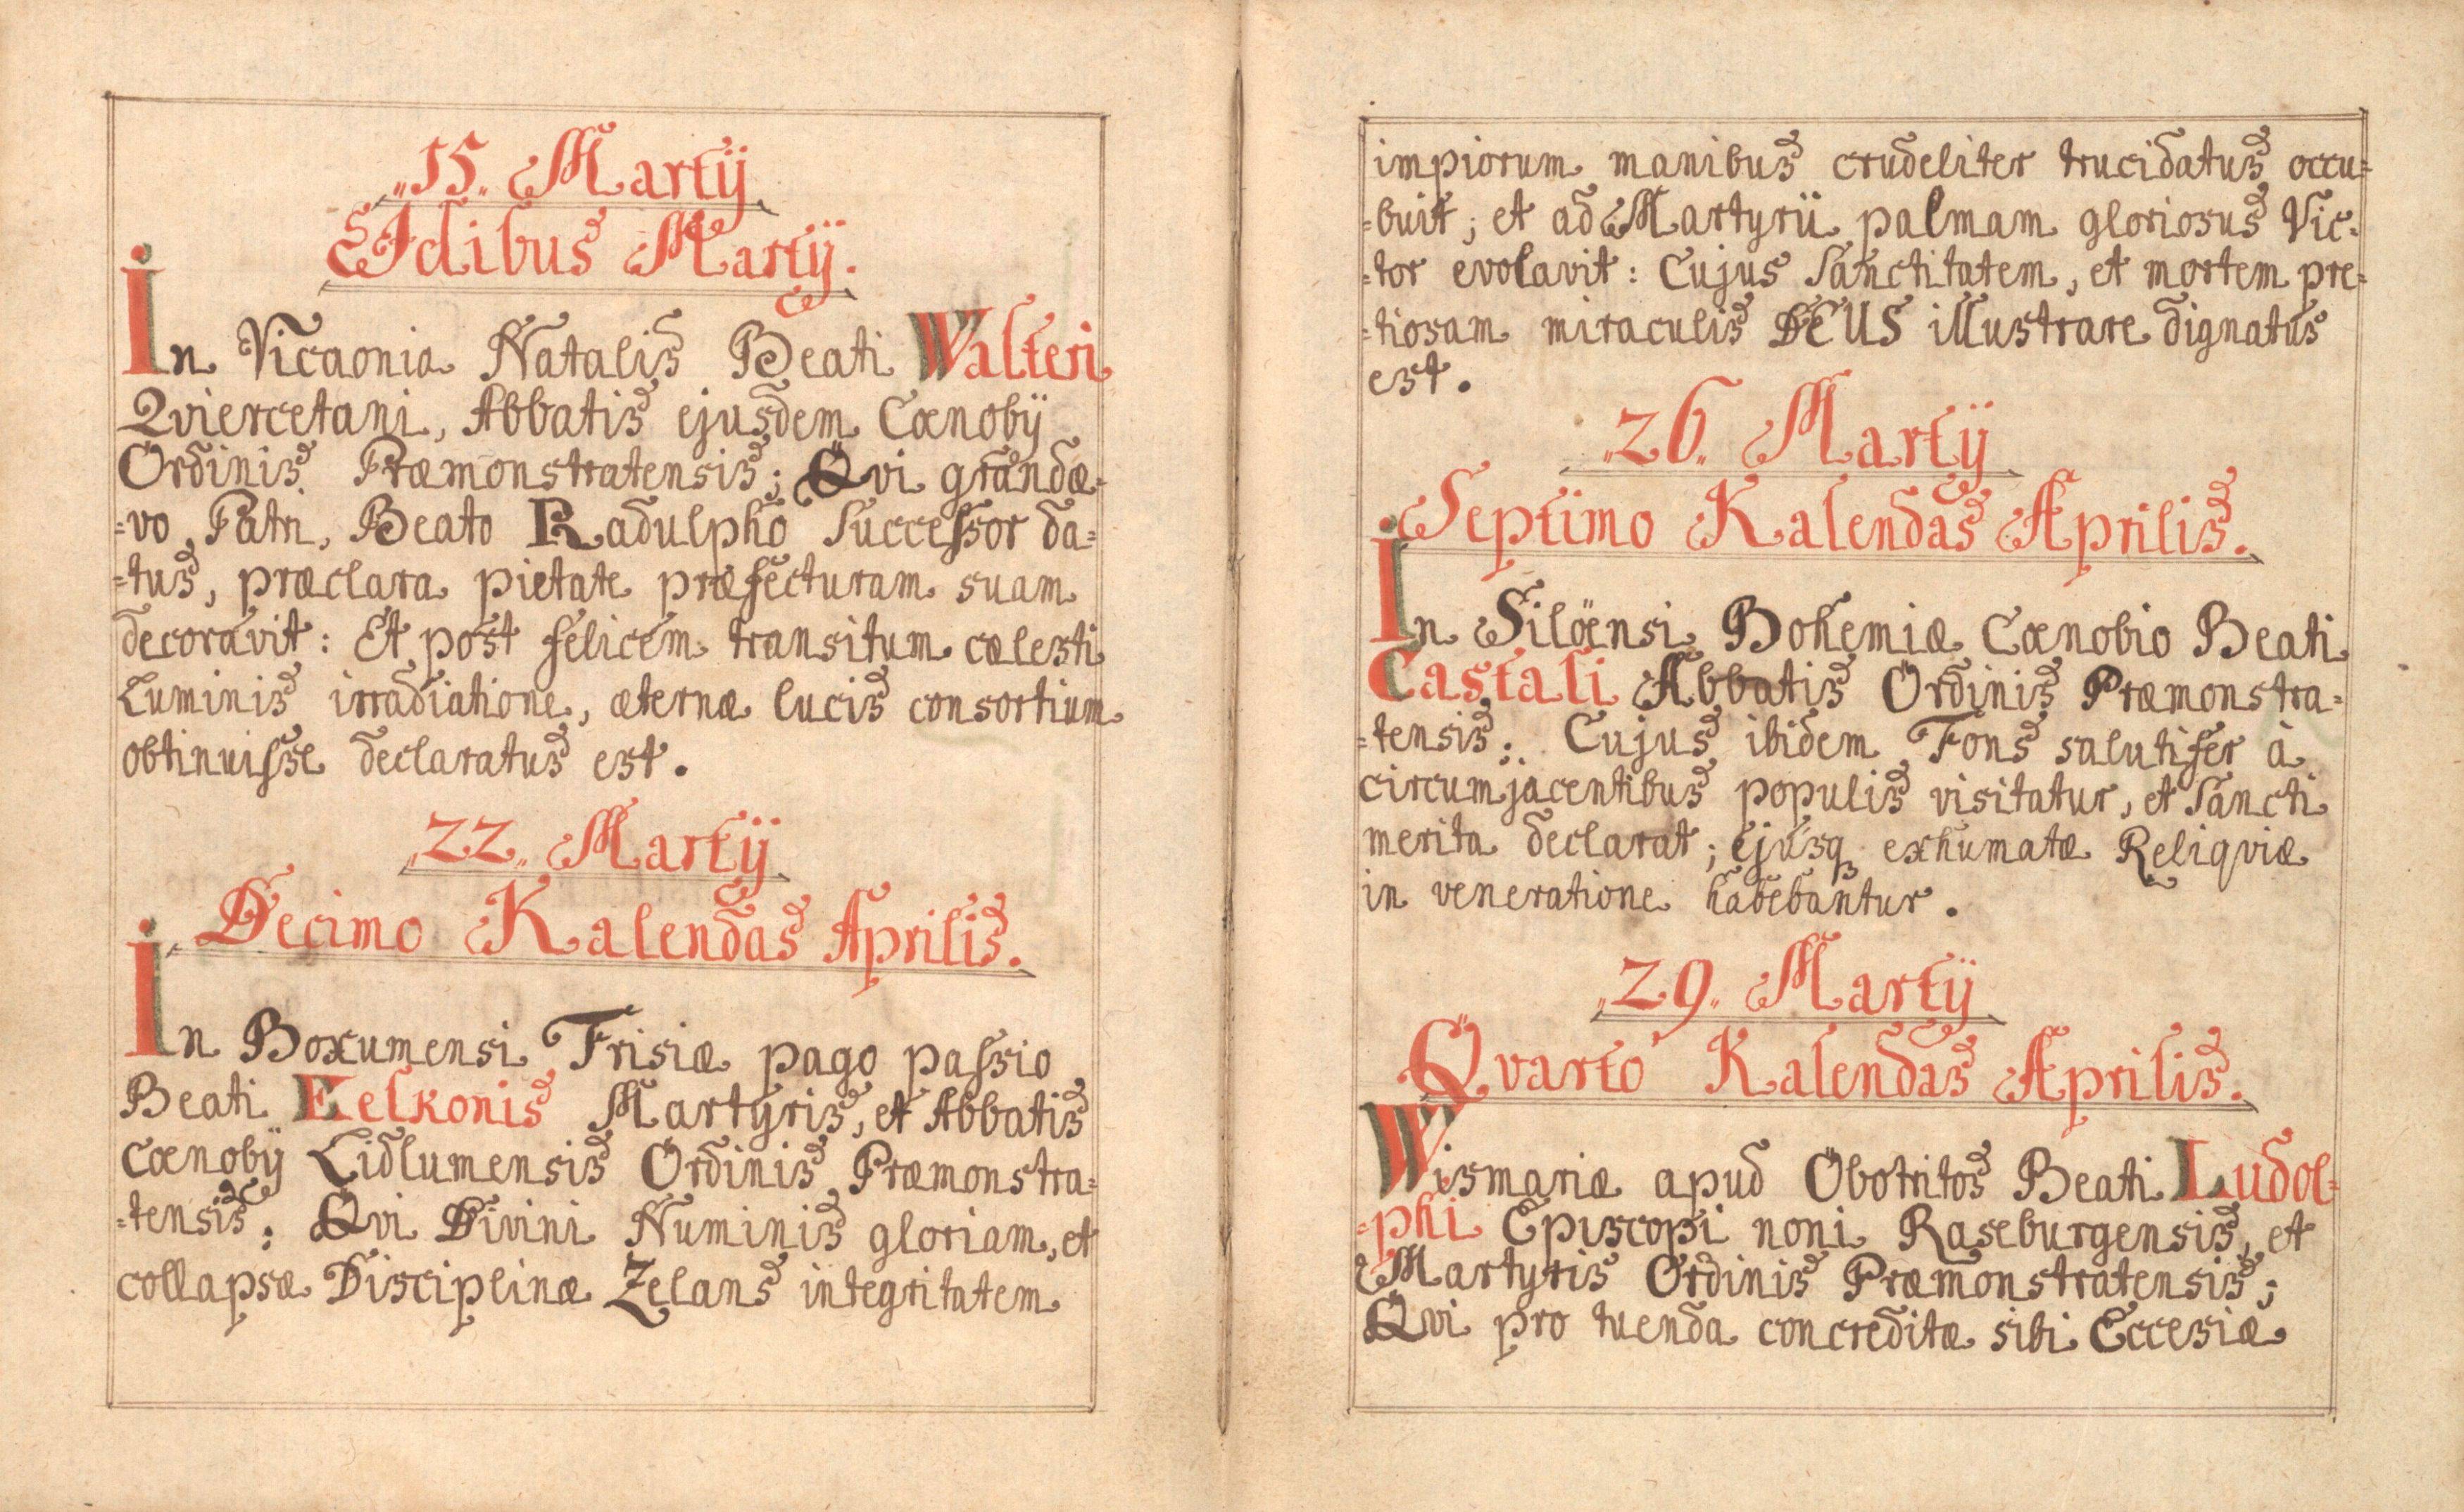 „15„ Martij
Idibus Martij.
In Vicaonia Natalis Beati Walteri
Qviercetani, Abbatis ejusdem Cœnobij
Ordinis Præmonstratensis; Qvi grandæ-
=vo Patri, Beato Radulpho Successor da=
=tus, præclara pietate præfecturam suam
decoravit: Et post felicem transitum cælesti
Luminis irradiatione, æternæ lucis consortium
obtinuisse declaratus est.
„22„ Martij
Decimo Kalendas Aprilis.
In Boxumensi Frisiæ pago passio
Beati Eelkonis Martyris, et Abbatis
Cœnobij Lidlumensis Ordinis Præmonstra=
=tensis: Qvi Divini Numinis gloriam, et
collapsæ Disciplinæ Zelans integritatem
impiorum manibus crudeliter trucidatus occu=
=buit; et ad Martyrii palmam gloriosus Vic-
=tor evolavit: Cujus Sanctitatem, et mortem pre=
=tiosam miraculis DEUS illustrare dignatus
est.
„26„ Martij
Septimo Kalendas Aprilis.
In Siloënsi Bohemiæ Cœnobio Beati
Castali Abbatis Ordinis Præmonstra=
=tensis: Cujus ibidem Fons salutifer à
circumjacentibus populis visitatur, et Sancti
merita declarat; ejusq exhumatæ Reliqviæ
in veneratione habebantur.
„29„ Martij
Qvarto Kalendas Aprilis.
Wismariæ apud Obotritos Beati Ludol=
=phi Episcopi noni Raseburgensis, et
Martyris Ordinis Præmonstratensis;
Qvi pro tuenda concreditæ sibi Eccesiæ